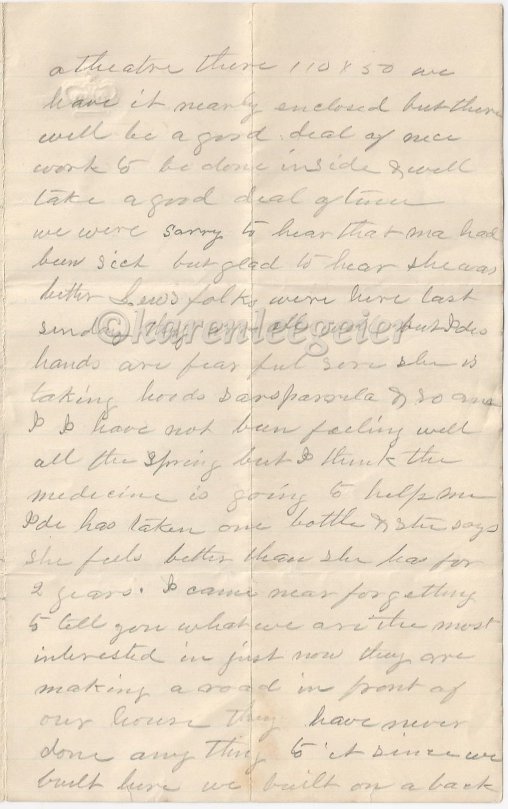 a theatre there 110 x 50 we
have it nearly enclosed but there
will be a good deal of nice
work to be done inside & will
take a good deal of time
we were sorry to hear that ma had
bun sick but glad to hear she was
better Lews folks were here last
sunday they were all well but Ides
hands are fearful sore she is
taking hoods sarsparrila & so am
I I have not bun feeling well
all the spring but I think the
medicine is going to help me
Ide has taken one bottle & she says
she feels better than she has for
2 years. I came near forgetting
to tell you what we are the most
interested in just now they are
making a road in front of
our house they have never
done any thing to it since we
built here we built on a back
©karenleegeier